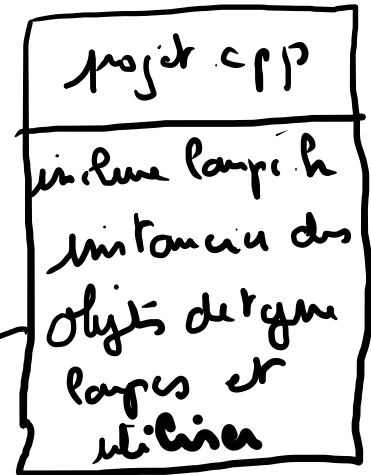 projet cpp
inclure lampe.h
instancier des
objets de type
lampes et
utiliser